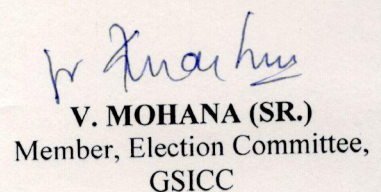 V. MOHANA (SR.)
Member, Election Committee,
GSICC